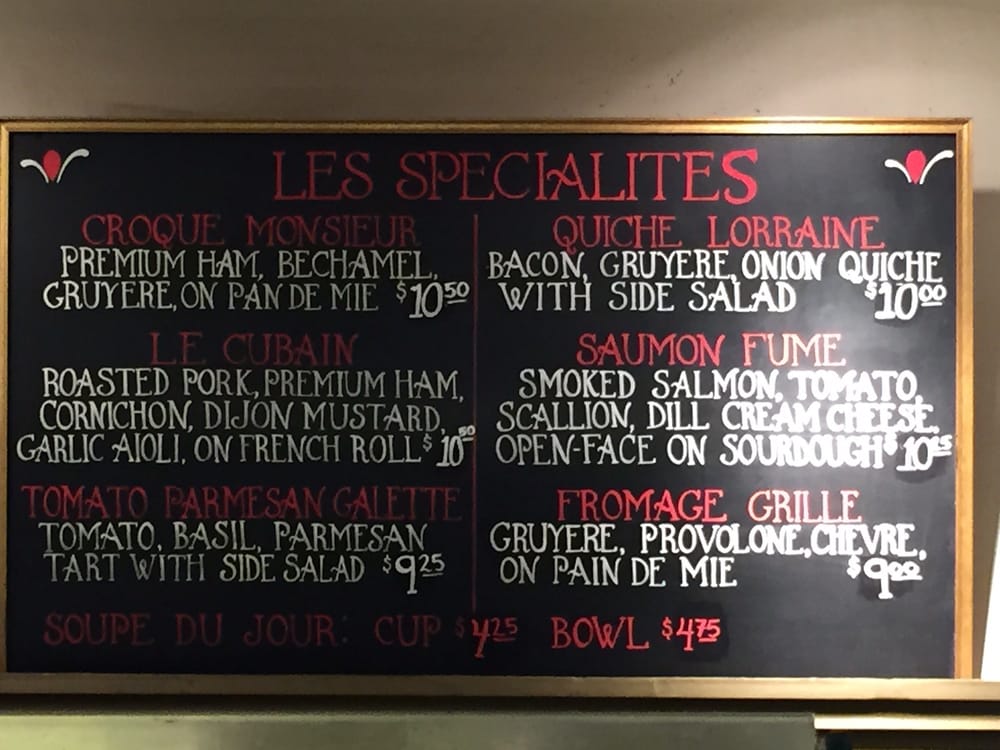 LES SPECIALITES
CROQUE MONSIEUR
PREMIUM HAM, BECHAMEL,
GRUYERE, ON PAN DE MIE $10.50
LE CUBAIN
ROASTED PORK, PREMIUM HAM,
CORNICHON, DIJON MUSTARD,
GARLIC AIOLI, ON FRENCH ROLL $10.50
TOMATO PARMESAN GALETTE
TOMATO, BASIL, PARMESAN
TART WITH SIDE SALAD $9.25
QUICHE LORRAINE
BACON, GRUYERE, ONION QUICHE
WITH SIDE SALAD $10.00
SAUMON FUME
SMOKED SALMON, TOMATO,
SCALLION, DILL CREAM CHEESE,
OPEN-FACE ON SOURDOUGH
FROMAGE GRILLE
GRUYERE, PROVOLONE, CHEVRE,
ON PAIN DE MIE $9.00
SOUPE DU JOUR: CUP $4.25 BOWL $4.75